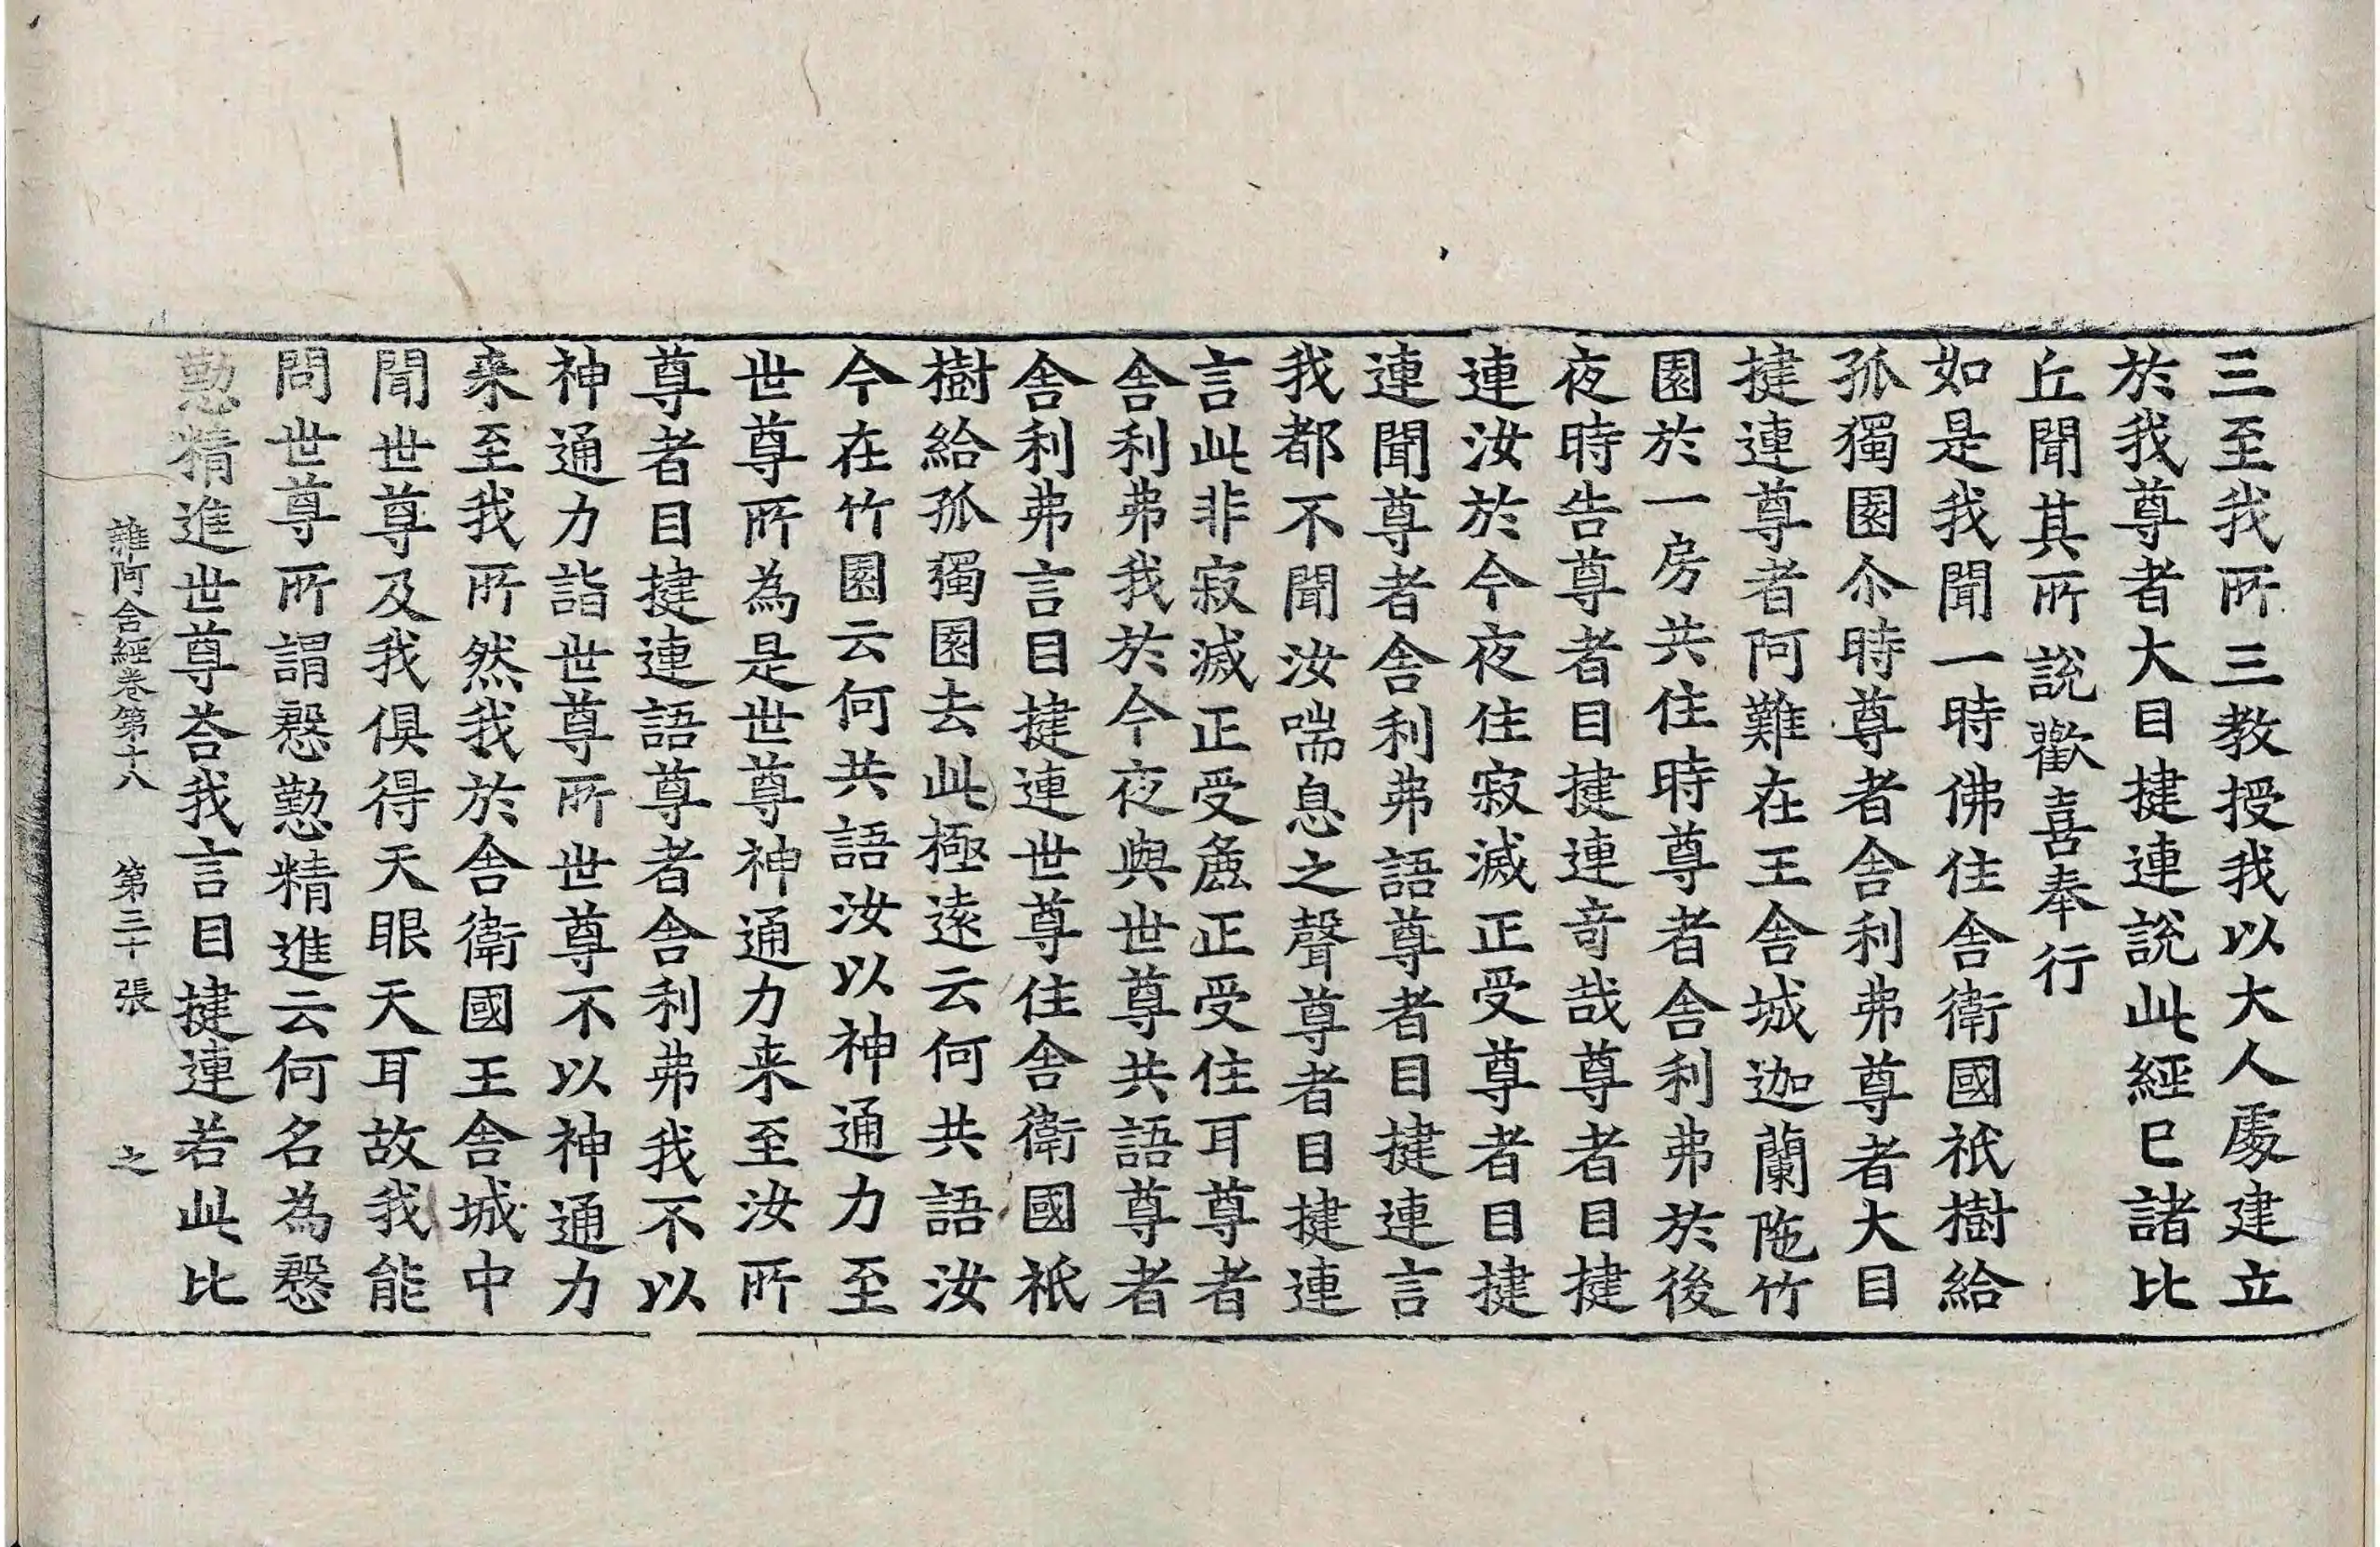 三至我所三教授我以大人處建立
於我尊者大目揵連說此經已諸比
丘聞其所說歡喜奉行
如是我聞一時佛住舍衛國祇樹給
孤獨園尒時尊者舍利弗尊者大目
揵連尊者阿難在王舍城迦蘭陁竹
園於一房共住時尊者舍利弗於後
夜時告尊者目揵連奇哉尊者目揵
連汝於今夜住寂滅正受尊者目揵
連聞尊者舍利弗語尊者目揵連言
我都不聞汝喘息之聲尊者目揵連
言此非寂滅正受麁正受住耳尊者
舍利弗我於今夜與世尊共語尊者
舍利弗言目揵連世尊住舍衛國祇
樹給孤獨園去此極遠云何共語汝
今在竹園云何共語汝以神通力至
世尊所為是世尊神通力来至汝所
尊者目揵連語尊者舍利弗我不以
神通力詣世尊所世尊不以神通力
来至我所然我於舍衛國王舍城中
聞世尊及我俱得天眼天耳故我能
問世尊所謂慇懃精進云何名為慇
懃精進世尊荅我言目揵連若此比
雜阿含經卷第十八 第三十張 之